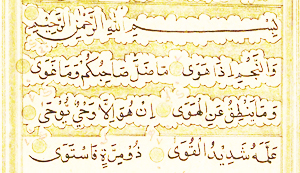 بِسْمِ اللَّهِ الرَّحْمَٰنِ الرَّحِيمِ
وَالنَّجْمِ إِذَا هَوَى مَا ضَلَّ صَاحِبُكُمْ وَمَا غَوَى
وَمَا يَنْطِقُ عَنِ الْهَوَى إِنْ هُوَ إِلَّا وَحْيٌ يُوحَى
عَلَّمَهُ شَدِيدُ الْقُوَى ذُو مِرَّةٍ فَاسْتَوَى